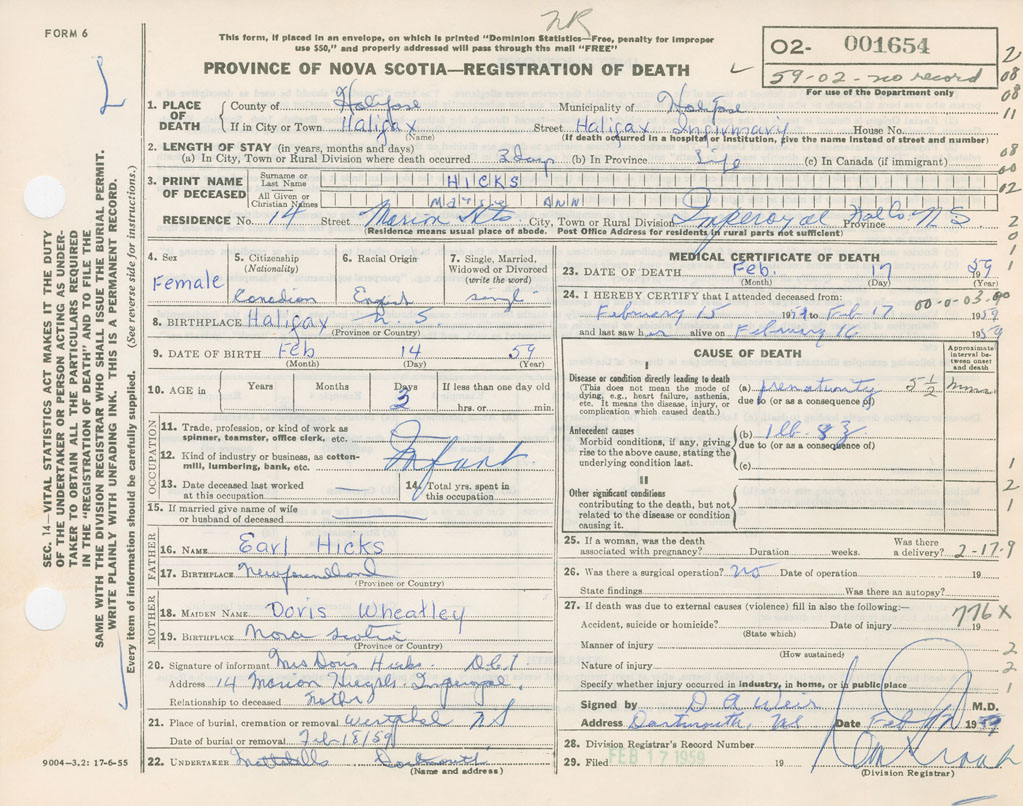 FORM 6
NR
This form, if placed in an envelope, on which is printed "Dominion Statistics—Free, penalty for improper
use $50," and properly addressed will pass through the mail "FREE"
PROVINCE OF NOVA SCOTIA—REGISTRATION OF DEATH
02- 001654
59-02-no record
For use of the Department only
SEC. 14—VITAL STATISTICS ACT MAKES IT THE DUTY
OF THE UNDERTAKER OR PERSON ACTING AS UNDER-
TAKER TO OBTAIN ALL THE PARTICULARS REQUIRED
IN THE "REGISTRATION OF DEATH" AND TO FILE THE
SAME WITH THE DIVISION REGISTRAR WHO SHALL ISSUE THE BURIAL PERMIT.
WRITE PLAINLY WITH UNFADING INK. THIS IS A PERMANENT RECORD.
Every item of information should be carefully supplied. (See reverse side for instructions.)
1. PLACE OF DEATH County of Halifax Municipality of Halifax
If in City or Town Halifax Street Halifax Infirmary House No.
(Name) (If death occurred in a hospital or institution, give the name instead of street and number)
2. LENGTH OF STAY (in years, months and days)
(a) In City, Town or Rural Division where death occurred 3 Days (b) In Province Life (c) In Canada (if immigrant)
3. PRINT NAME OF DECEASED Surname or Last Name HICKS
All Given or Christian Names ANN
RESIDENCE No. 14 Street Marion Hts City, Town or Rural Division Imperoyal Hal Co. Province N S
(Residence means usual place of abode. Post Office Address for residents in rural parts not sufficient)
4. Sex Female
5. Citizenship (Nationality) Canadian
6. Racial Origin English
7. Single, Married, Widowed or Divorced (write the word) single
8. BIRTHPLACE Halifax N. S.
(Province or Country)
9. DATE OF BIRTH Feb 14 59
(Month) (Day) (Year)
10. AGE in Years Months Days 3 If less than one day old
hrs. or min.
OCCUPATION
11. Trade, profession, or kind of work as spinner, teamster, office clerk, etc.
12. Kind of industry or business, as cotton-mill, lumbering, bank, etc. Infant
13. Date deceased last worked at this occupation —
14. Total yrs. spent in this occupation
15. If married give name of wife or husband of deceased —
FATHER
16. NAME Earl Hicks
17. BIRTHPLACE Newfoundland
(Province or Country)
MOTHER
18. MAIDEN NAME Doris Wheatley
19. BIRTHPLACE Nova Scotia
(Province or Country)
20. Signature of informant Mrs Doris Hicks.
Address 14 Marion Heights. Imperoyal.
Relationship to deceased
21. Place of burial, cremation or removal Westphal NS
Date of burial or removal Feb 18/59
22. UNDERTAKER Mattatalls Dartmouth
(Name and address)
9004-3.2: 17-6-55
MEDICAL CERTIFICATE OF DEATH
23. DATE OF DEATH Feb. 17 1959
(Month) (Day) (Year)
24. I HEREBY CERTIFY that I attended deceased from:
February 15 1959 to Feb 17 1959
00-0-03-00
and last saw her alive on February 16 1959
CAUSE OF DEATH
Approximate interval between onset and death
I
Disease or condition directly leading to death
(This does not mean the mode of dying, e.g., heart failure, asthenia, etc. It means the disease, injury, or complication which caused death.)
(a) prematurity 5 1/2
due to (or as a consequence of)
Antecedent causes
Morbid conditions, if any, giving rise to the above cause, stating the underlying condition last.
(b) 1 lb - 8 z
due to (or as a consequence of)
(c)
II
Other significant conditions
contributing to the death, but not related to the disease or condition causing it.
25. If a woman, was the death associated with pregnancy? Duration weeks. Was there a delivery? 2-17-9
26. Was there a surgical operation? no Date of operation 19
State findings Was there an autopsy?
27. If death was due to external causes (violence) fill in also the following:—
776X
Accident, suicide or homicide? Date of injury 19
(State which)
Manner of injury
(How sustained)
Nature of injury
Specify whether injury occurred in industry, in home, or in public place
Signed by D A Weir M.D.
Address Dartmouth, NS Date Feb 17 1959
28. Division Registrar's Record Number
29. Filed FEB 17 1959 19
(Division Registrar)
2
08
08
11
08
00
02
2
0
1
1
2
1
2
2
1